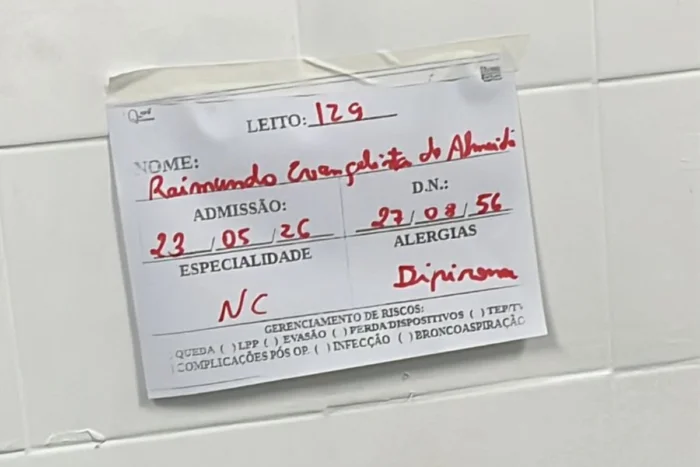 LEITO: 129
NOME:
Raimundo Evangelista de Almeida
ADMISSÃO:
23/05/26
D.N.:
27/08/56
ESPECIALIDADE
NC
ALERGIAS
Dipirona
GERENCIAMENTO DE RISCOS:
QUEDA ( ) LPP ( ) EVASÃO ( ) PERDA/DISPOSITIVOS ( ) TEP/T
COMPLICAÇÕES PÓS OP. ( ) INFECÇÃO ( ) BRONCOASPIRAÇÃO